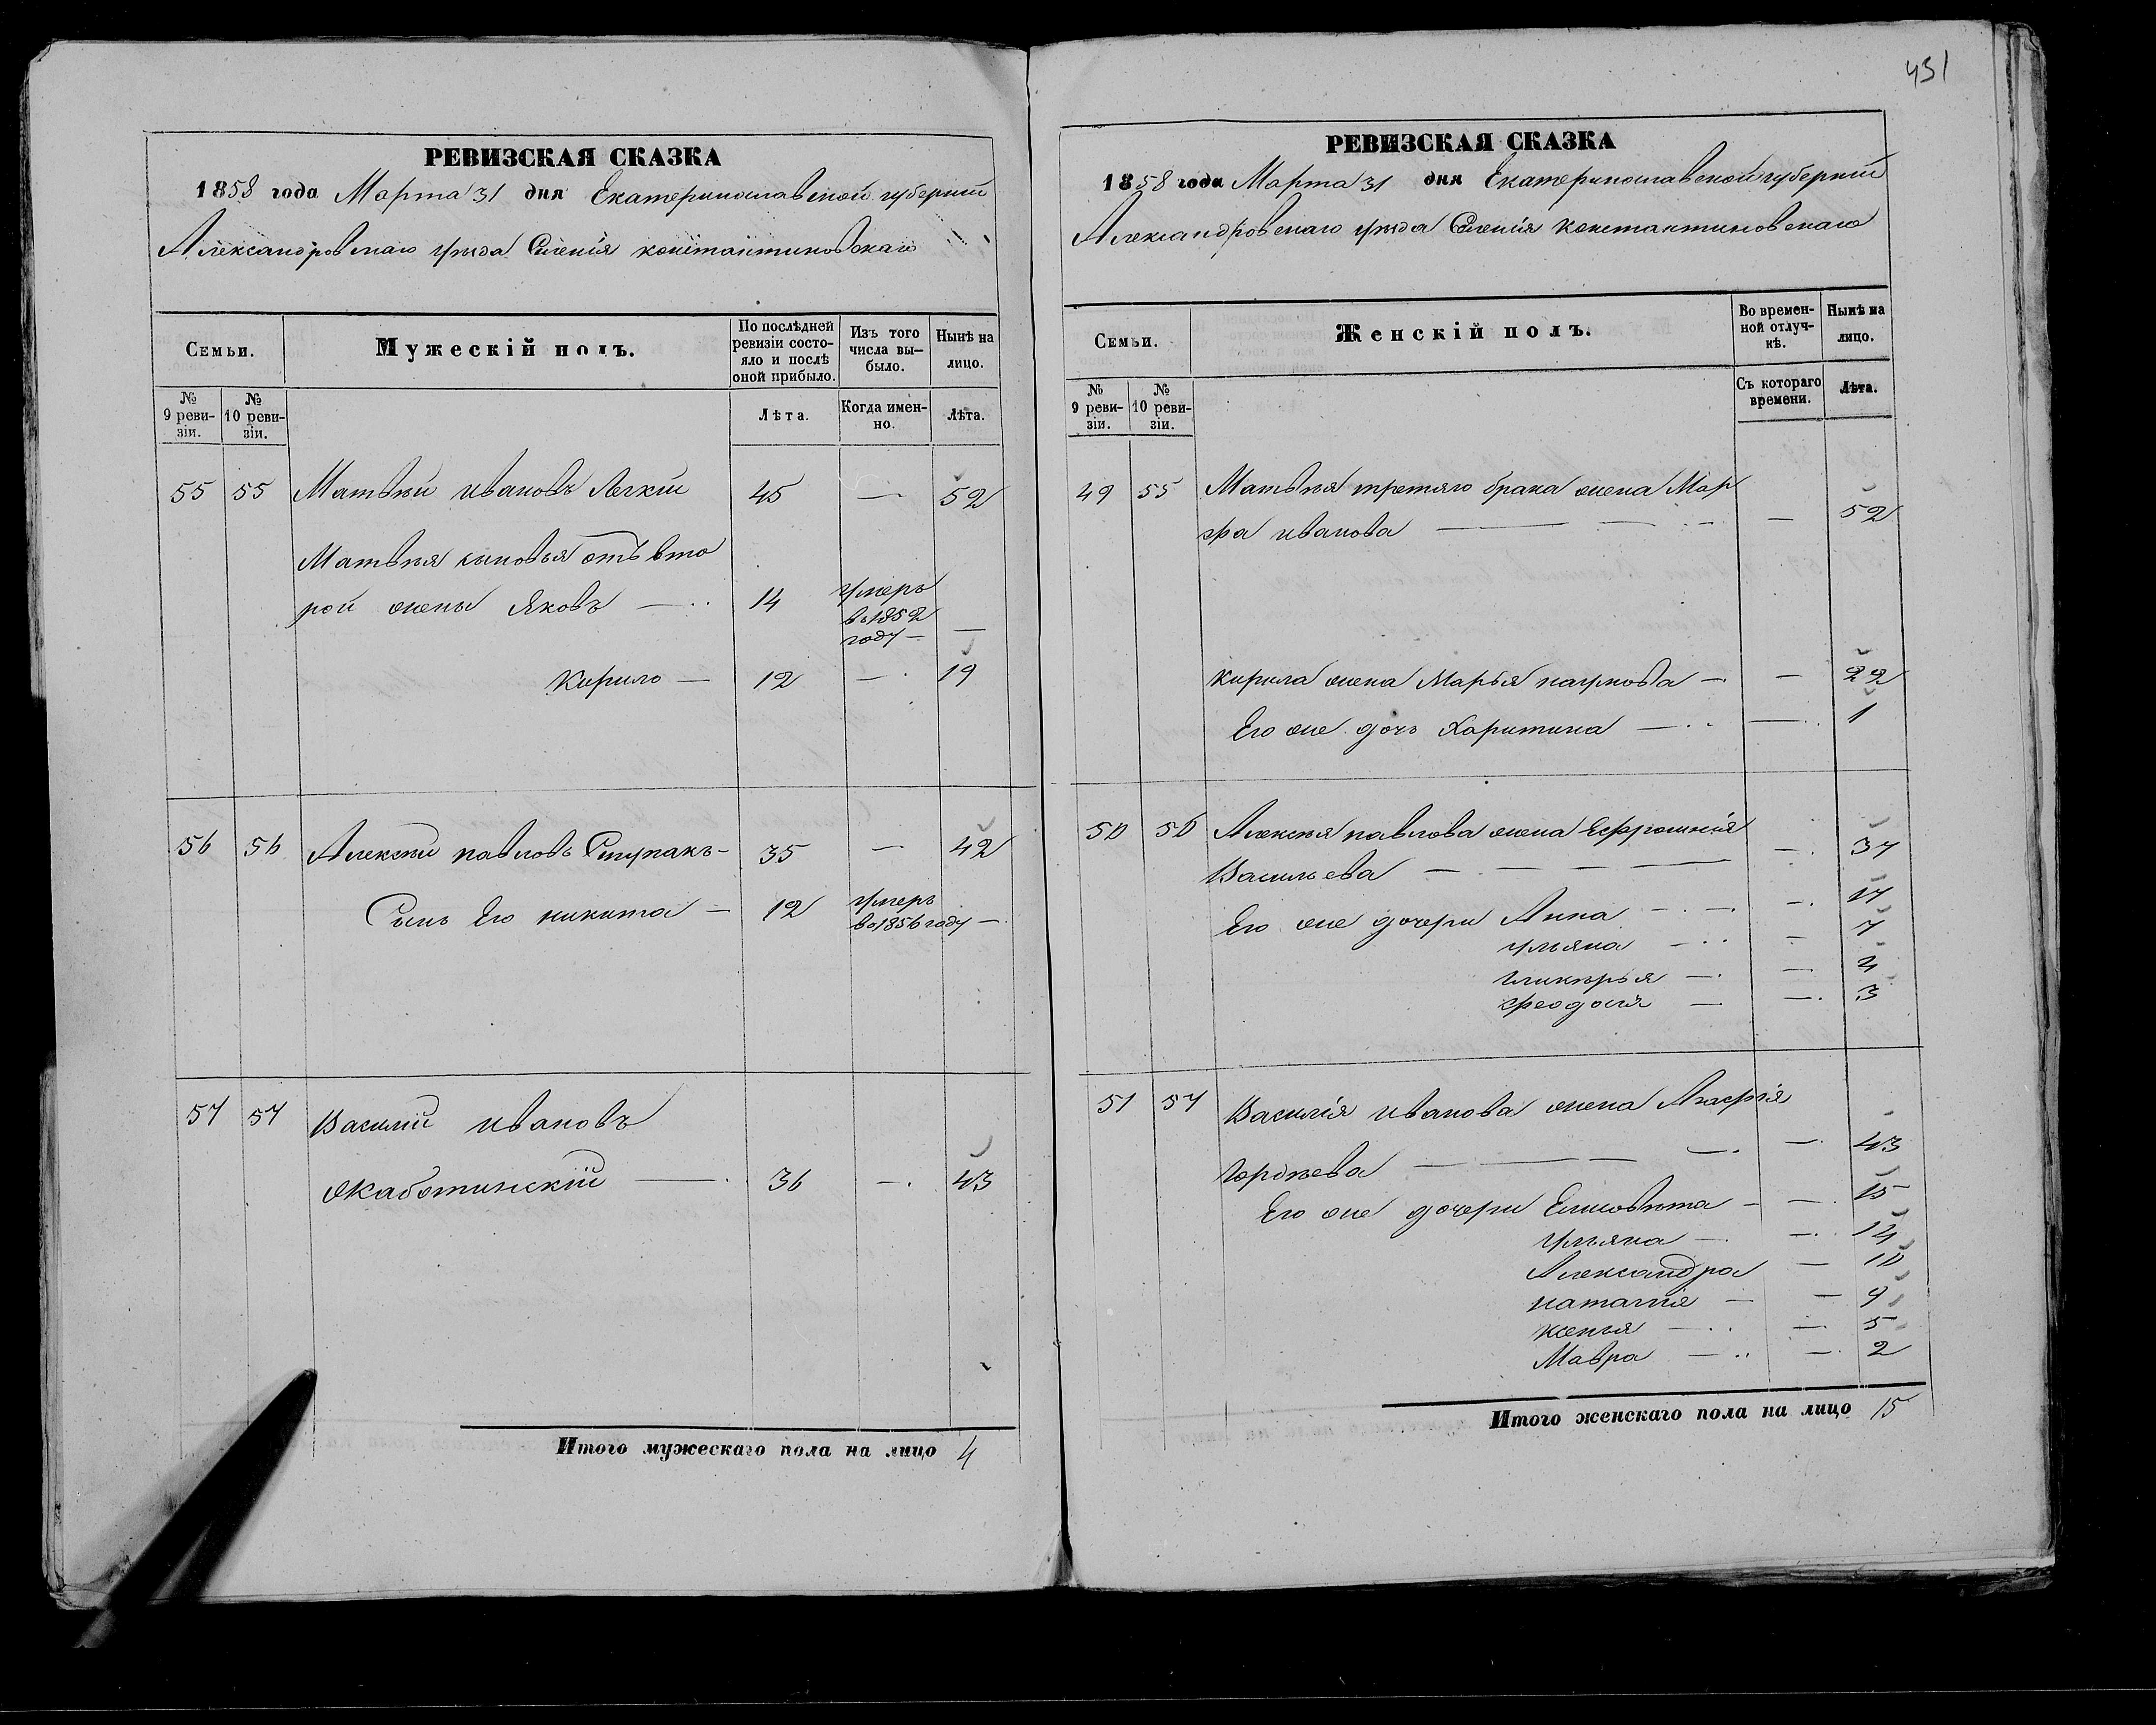 451
РЕВИЗСКАЯ СКАЗКА
1858 года Марта 31 дня Екатеринославской губернии
Александровскаго уѣзда Селенія константиновскаго
Семьи.
Мужескій полъ.
По послѣдней ревизіи состояло и послѣ оной прибыло.
Изъ того числа выбыло.
Нынѣ на лицо.
№ 9 ревизіи.
№ 10 ревизіи.
Лѣта.
Когда именно.
Лѣта.
55 55 Матвѣй ивановъ Легкій 45 — 52
Матвѣя сыновья отъ вто
рой жены Яковъ — 14 умеръ
в 1852
году — —
Кирило — 12 — 19
56 56 Алексѣй павловъ Ступакъ - 35 — 42
Сынъ Его никита — 12 умеръ
во 1856 году —
57 57 Василій ивановъ
Жаботинскій — 36 — 43
Итого мужескаго пола на лицо 4
РЕВИЗСКАЯ СКАЗКА
1858 года Марта 31 дня Екатеринославской губерніи
Александровскаго уѣзда Селенія константиновскаго
Семьи.
Женскій полъ.
Во временной отлучкѣ.
Нынѣ на лицо.
№ 9 ревизіи.
№ 10 ревизіи.
Съ котораго времени.
Лѣта.
49 55 Матвѣя третяго брака жена Мар
фа иванова — — 52
кирила жена Марья наумова — — 22
Его же дочь Харитина — — 1
50 56 Алексѣя павлова жена Ефросинія
Васильева — — 37
Его же дочери Анна — — 17
ульяна — — 7
гликѣрья — — 4
феодосія — — 3
51 57 Василія иванова жена Агафія
Гордѣева — — 43
Его же дочери Елисовѣта — — 15
ульяна — — 14
Александра — 10
наталія — — 9
ксенья — — 5
Мавра — — 2
Итого женскаго пола на лицо 15